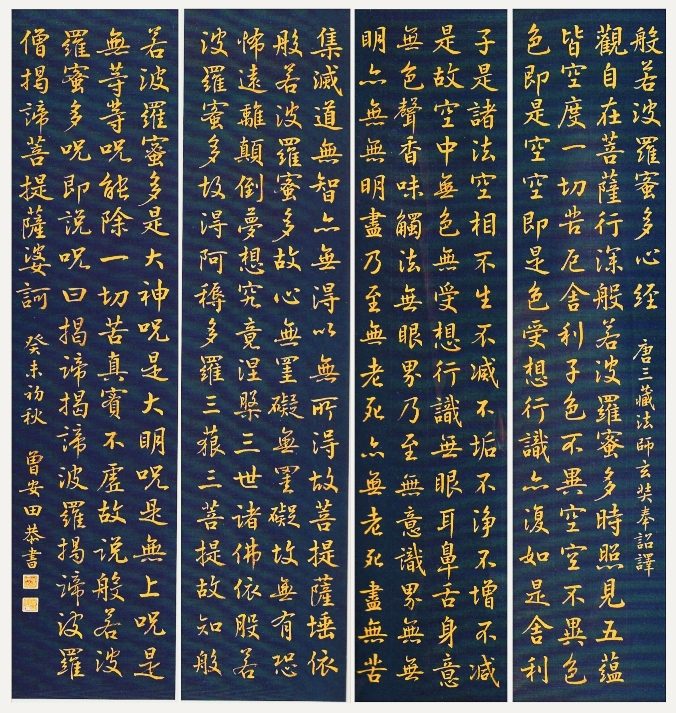 般若波羅蜜多心経 唐三藏法師玄奘奉詔譯
觀自在菩薩行深般若波羅蜜多時照見五蘊
皆空度一切苦厄舍利子色不異空空不異色
色即是空空即是色受想行識亦復如是舍利
子是諸法空相不生不滅不垢不浄不增不減
是故空中無色無受想行識無眼耳鼻舌身意
無色聲香味觸法無眼界乃至無意識界無無
明亦無無明盡乃至無老死亦無老死盡無苦
集滅道無智亦無得以無所得故菩提薩埵依
般若波羅蜜多故心無罣礙無罣礙故無有恐
怖遠離顛倒夢想究竟涅槃三世諸佛依般若
波羅蜜多故得阿耨多羅三藐三菩提故知般
若波羅蜜多是大神呪是大明呪是無上呪是
無等等呪能除一切苦真實不虛故説般若波
羅蜜多呪即説呪曰揭諦揭諦波羅揭諦波羅
僧揭諦菩提薩婆訶 癸未初秋 曾安田恭書